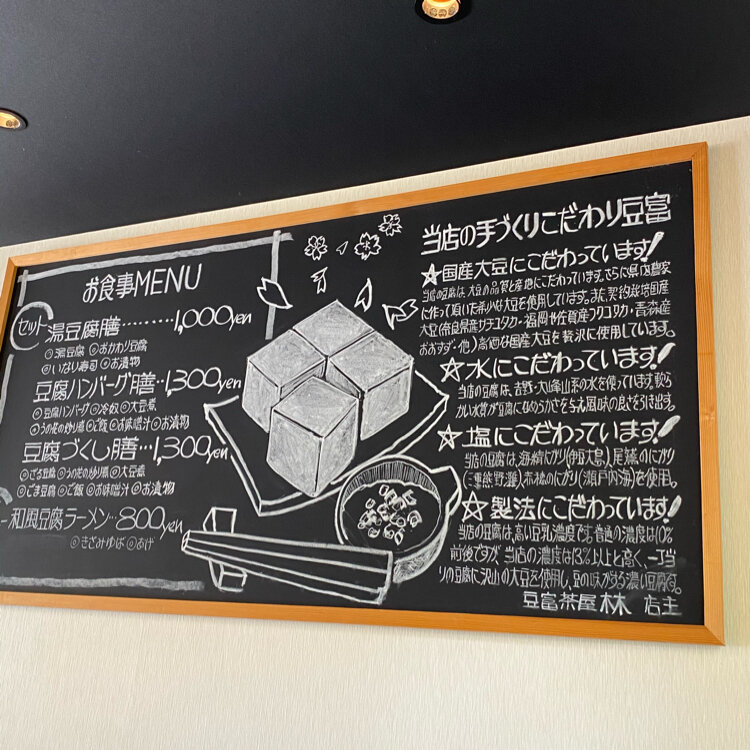 お食事MENU
セット
湯豆腐膳………1,000yen
◎湯豆腐 ◎おかわり豆腐
◎いなり寿司 ◎お漬物
豆腐ハンバーグ膳…1,300yen
◎豆腐ハンバーグ ◎冷奴 ◎大豆煮
◎うの花の炒り煮 ◎ご飯 ◎お味噌汁 ◎お漬物
豆腐づくし膳…1,300yen
◎ざる豆腐 ◎うの花の炒り煮 ◎大豆煮
◎ごま豆腐 ◎ご飯 ◎お味噌汁 ◎お漬物
和風豆腐ラーメン…800yen
◎きざみゆば ◎あげ
当店の手づくりこだわり豆富
☆国産大豆にこだわっています!
当店の豆腐は、大豆の品質と産地にこだわっています。さらに県内農家
に作って頂いた希少な大豆を使用しています。また、契約栽培国産
大豆(奈良県産サチユタカ・福岡や佐賀産フクユタカ・青森産
おおすず・他)高価な国産大豆を贅沢に使用しています。
☆水にこだわっています!
当店の豆腐は、吉野・大峰山系の水を使っています。軟ら
かい水質が豆腐になめらかさを与え風味の良さを引き出す。
☆塩にこだわっています!
当店の豆腐は、海精にがり(伊豆大島)、尾鷲のにがり
(三重熊野灘)、赤穂のにがり(瀬戸内海)を使用。
☆製法にこだわっています!
当店の豆腐は、高い豆乳濃度です。普通の濃度は10%
前後ですが、当店の濃度は13%以上と高く、一丁当
りの豆腐に沢山の大豆を使用し、豆の味がする濃い豆腐です。
豆富茶屋 林 店主